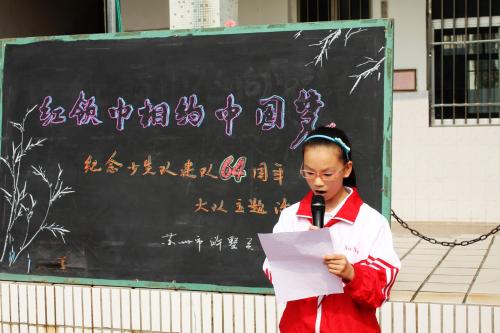 红领巾相约中国梦
纪念少先队建队64周年
大队主题活
苏州市浒墅关